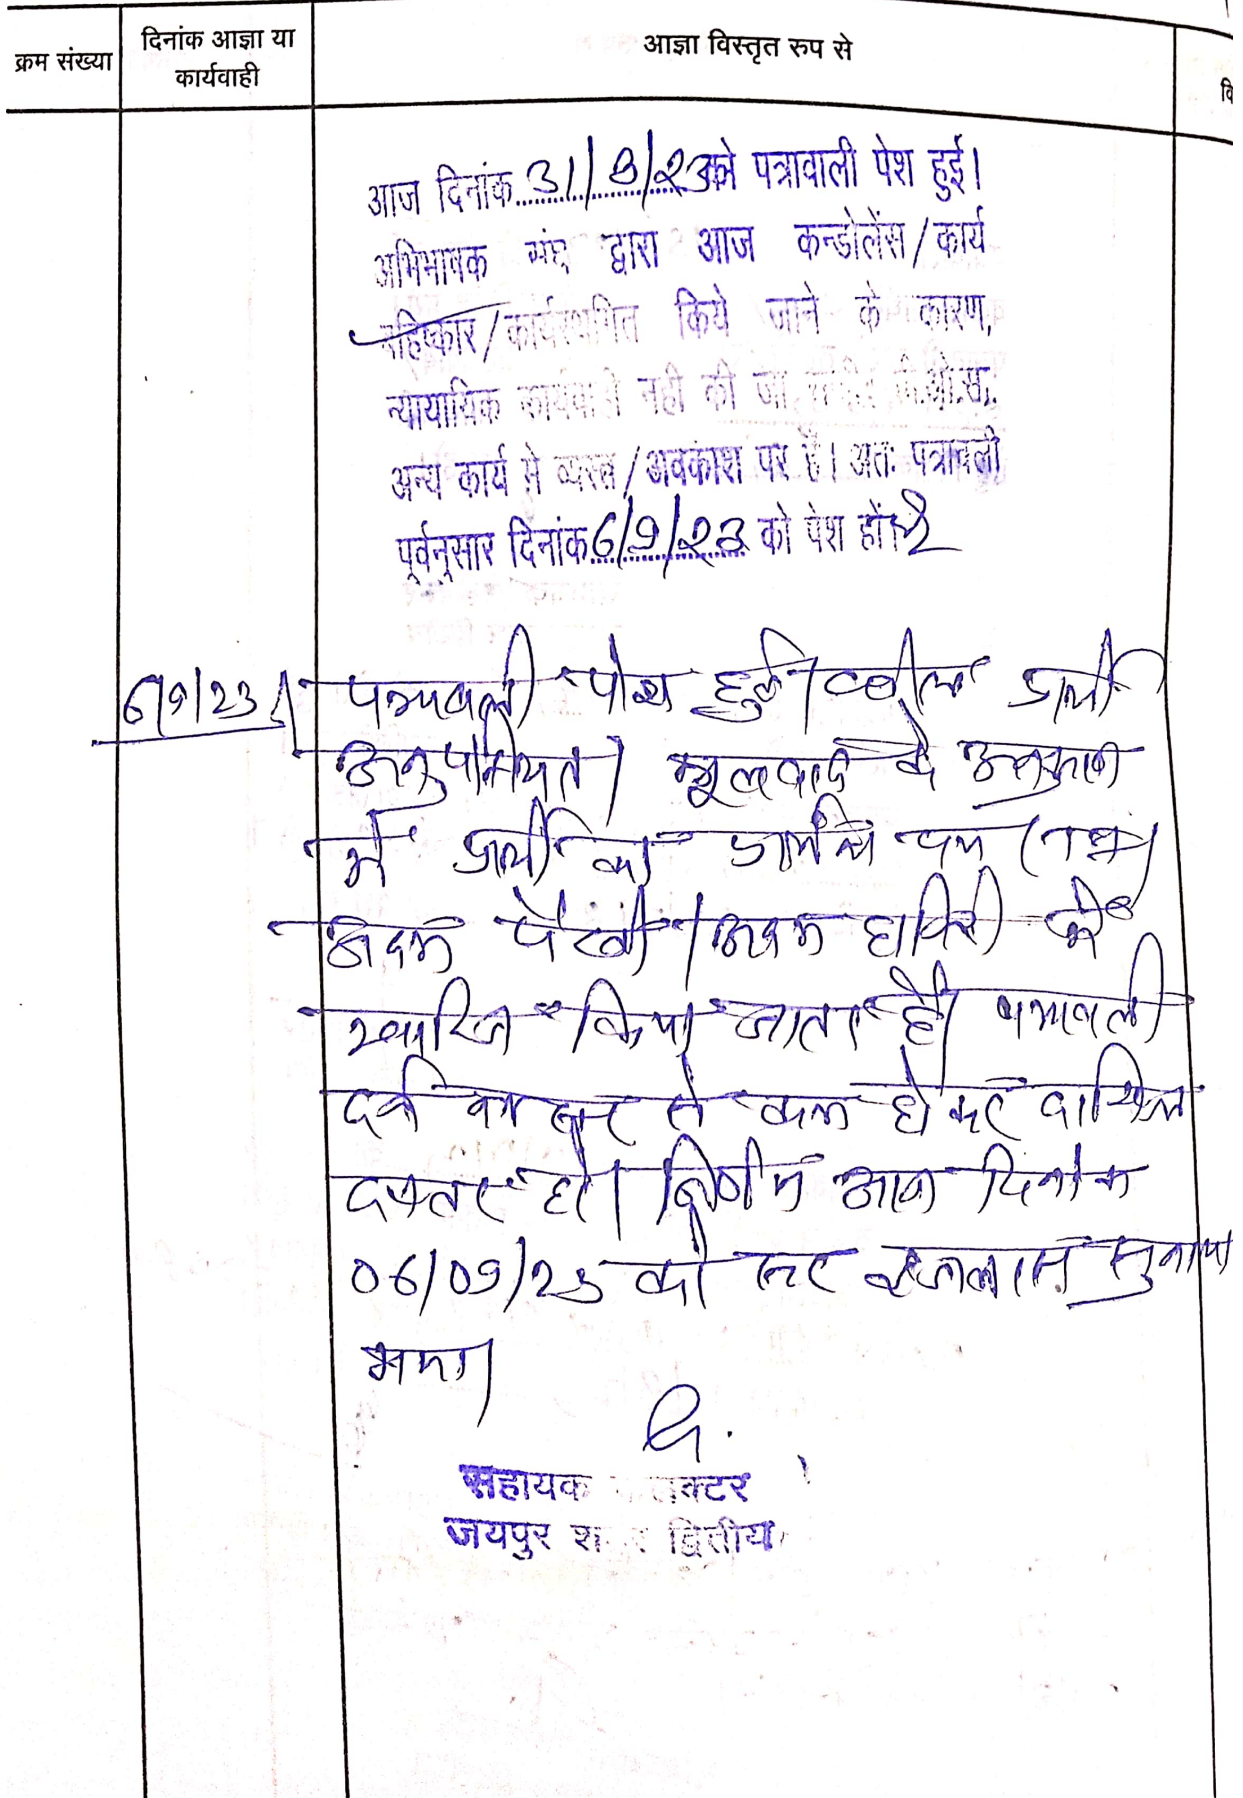 क्रम संख्या
दिनांक आज्ञा या
कार्यवाही
आज्ञा विस्तृत रुप से
वि
आज दिनांक 31/8/23 को पत्रावाली पेश हुई।
अभिभाषक संघ द्वारा आज कन्डोलेंस/कार्य
बहिष्कार/कार्यस्थगित किये जाने के कारण,
न्यायायिक कार्यवाही नही की जा पी.ओ.सा.
अन्य कार्य मे व्यस्त/अवकाश पर है। अतः पत्रावली
पूर्वनुसार दिनांक 6/9/23 को पेश हों।
6/9/23
पत्रावली पेश हुई। वकील प्रार्थी
अनुपस्थित। मूलवाद के
में प्रार्थी का प्रार्थना पत्र
अदम पैरवी/अदम हाजिरी में
खारिज किया जाता है। पत्रावली
दर्ज से कम होकर दाखिल
दफ्तर हो। निर्णय आज दिनांक
06/09/23 को सर इजलास सुनाया
गया।
सहायक कलक्टर
जयपुर शहर द्वितीय